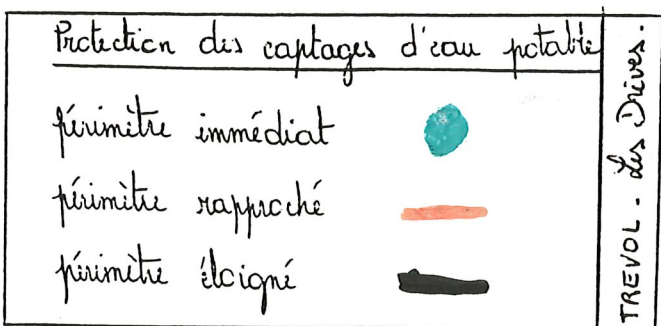 Protection des captages d'eau potable
périmètre immédiat
périmètre rapproché
périmètre éloigné
TREVOL - Les Drives.